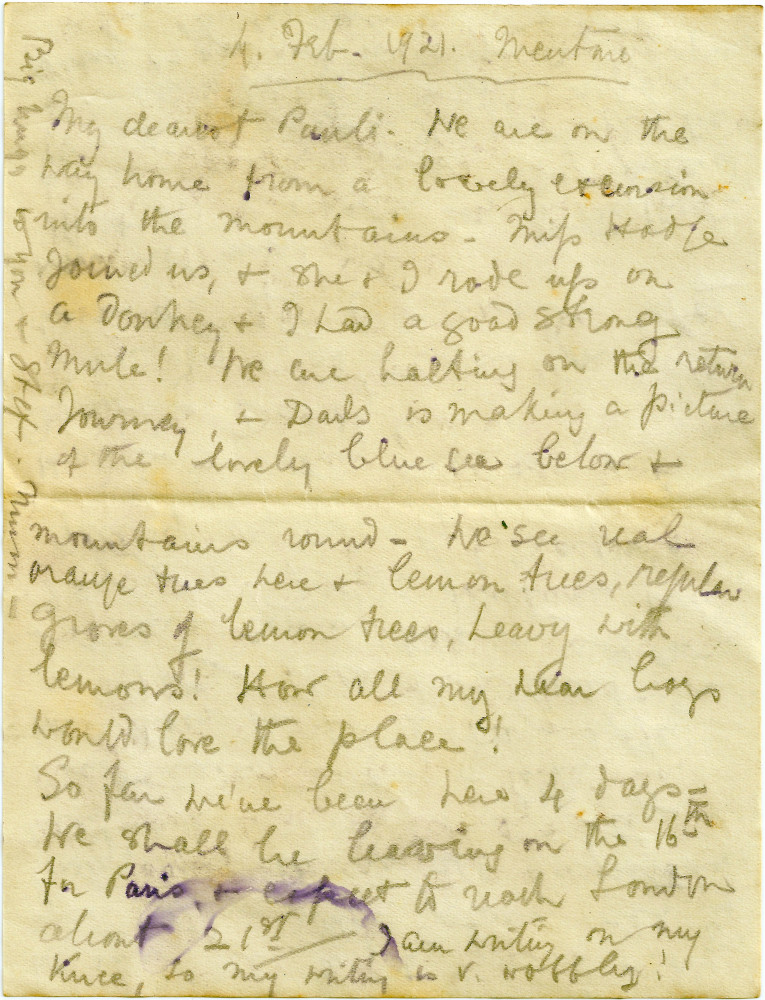 4. Feb. 1921. Mentone
My dearest Pauli. We are on the
way home from a lovely excursion
into the mountains - Miss Hodge
Joined us, + she + I rode up on
a Donkey + I had a good strong
Mule! We are halting on the return
Journey, + Dads is making a picture
of the lovely blue sea below +
mountains round - We see real
orange trees here + lemon trees, regular
Groves of lemon trees, heavy with
lemons! How all my dear boys
would love the place!
So far we've been here 4 days -
We shall be leaving on the 16th
for Paris, + expect to reach London
about 21st I am writing on my
Knee, so my writing is v. wobbly!
Big hugs to you + Steff. Mum -